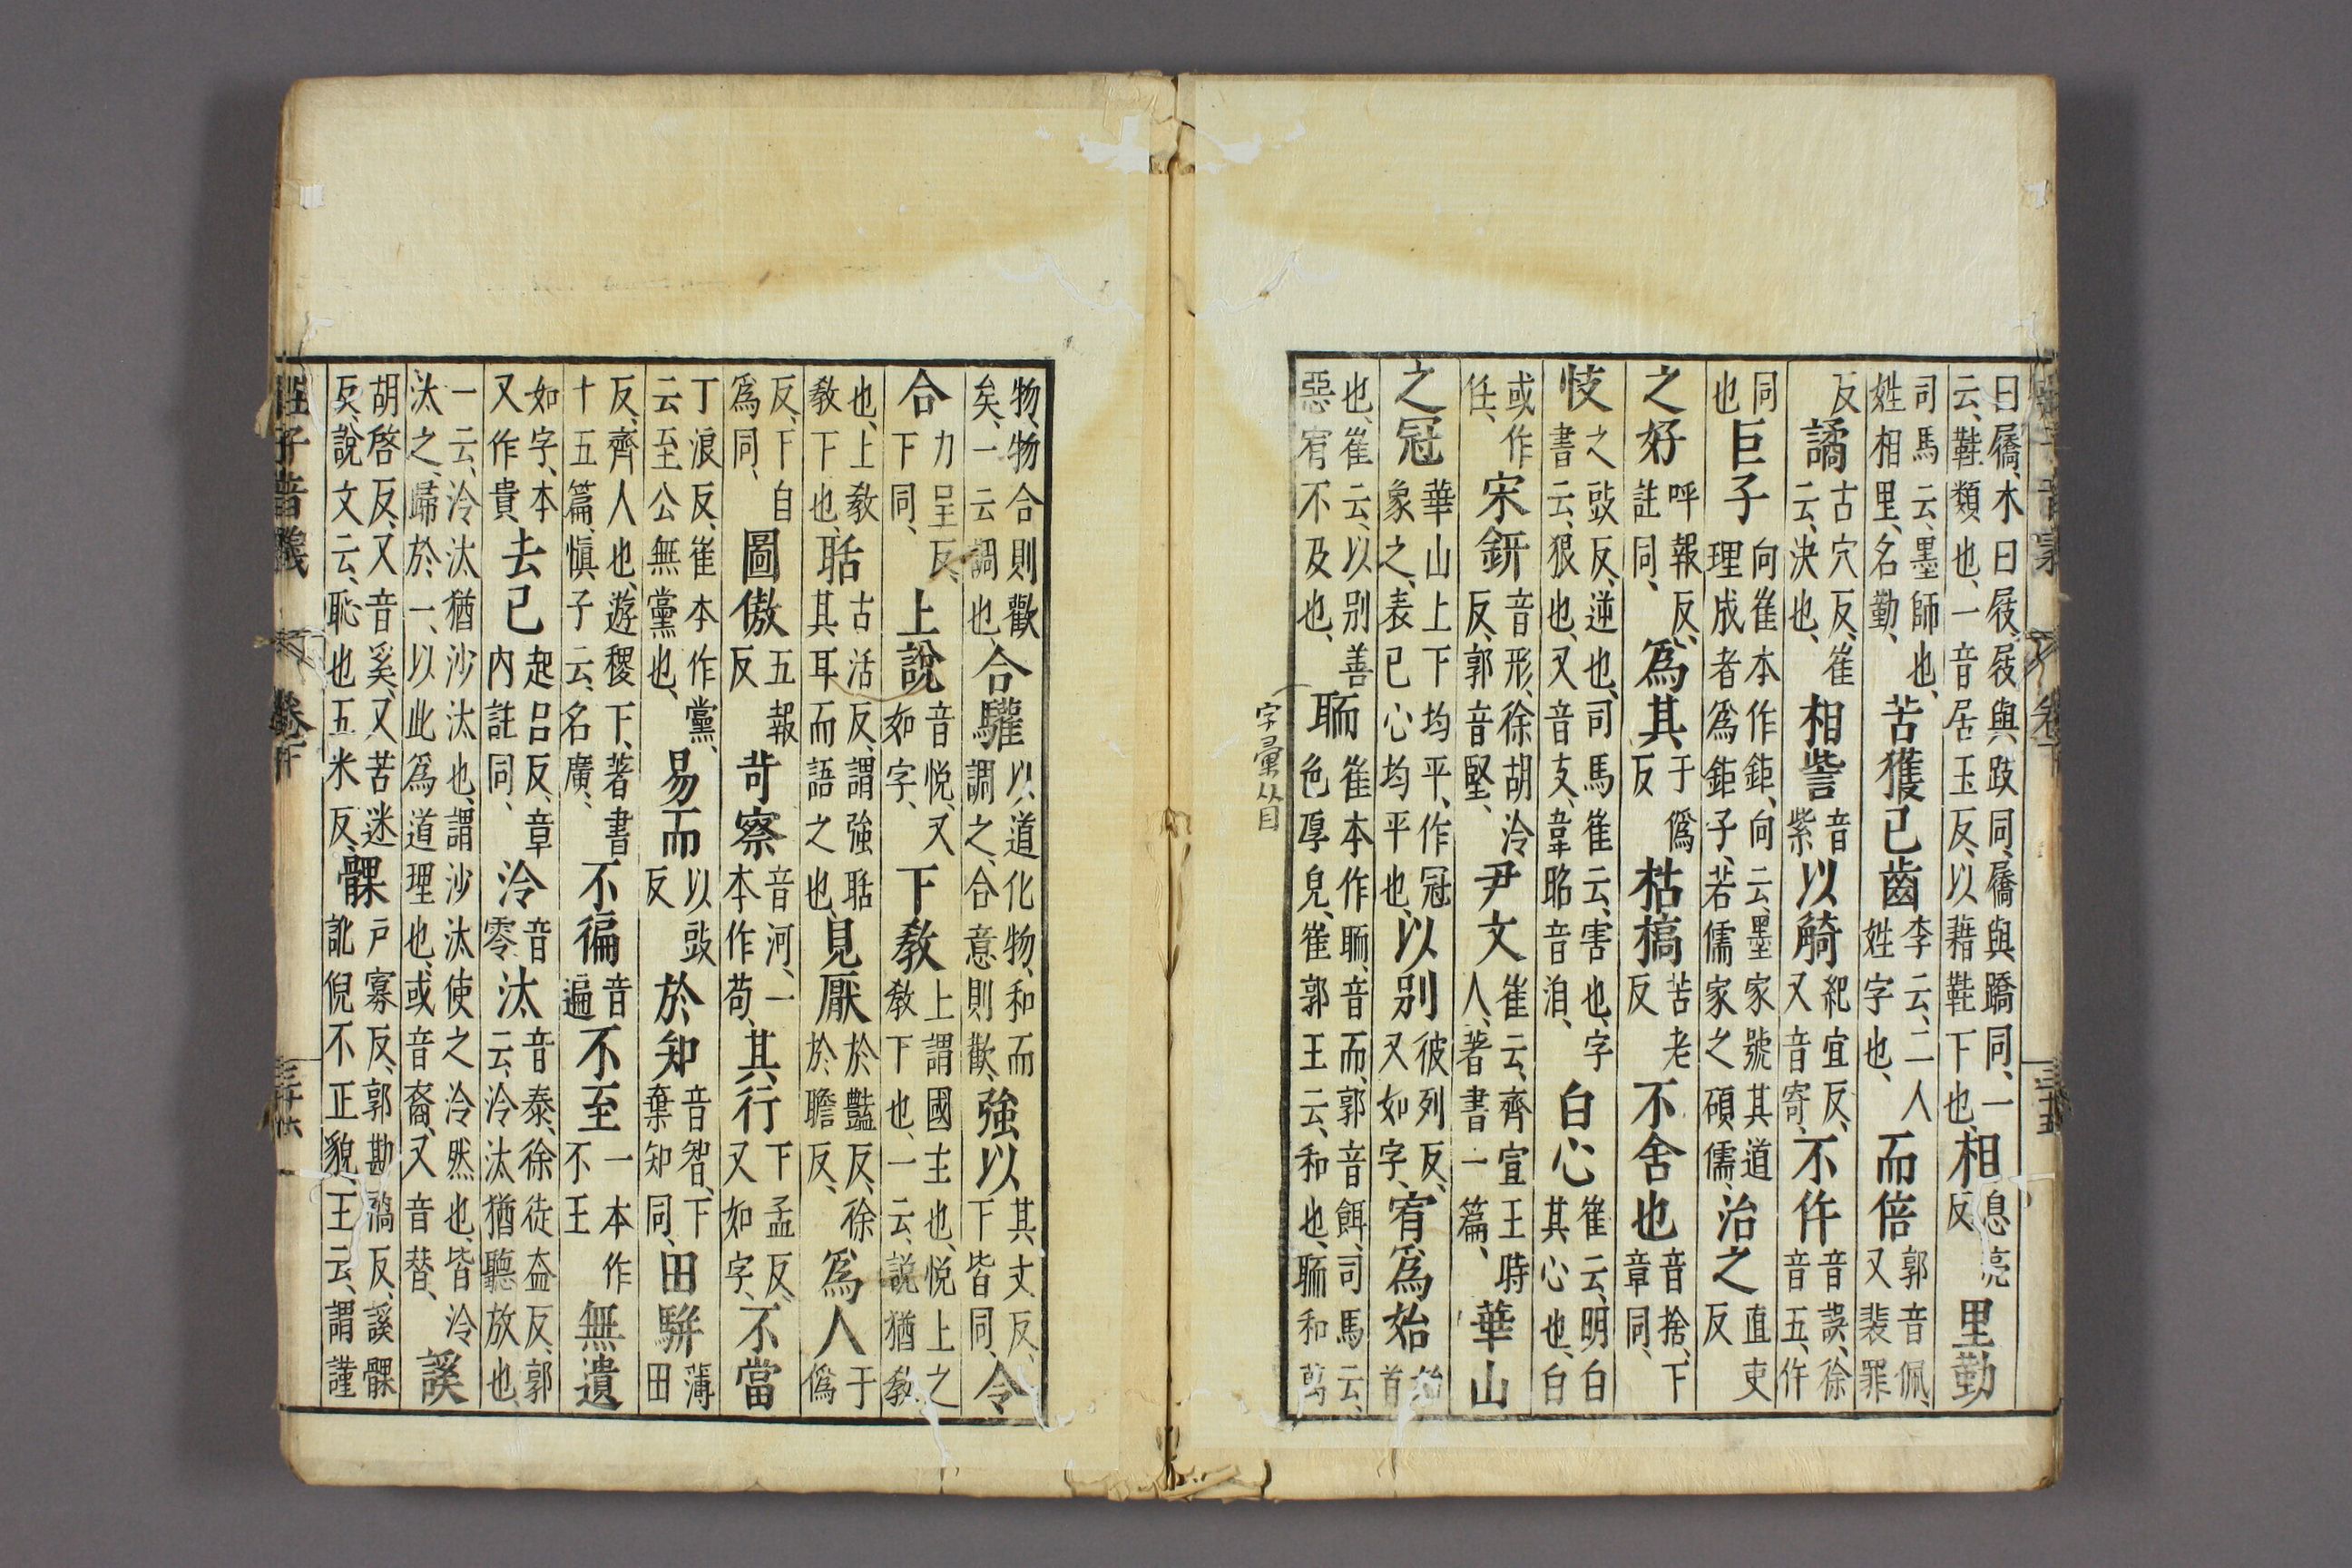 曰屩、木曰屐、屐與跂同、屩與蹻同、一云、鞋類也、一音居玉反、以藉鞋下也、相息亮反里勤
司馬云、墨師也、姓相里、名勤、苦獲已齒李云、二人姓字也、而倍郭音佩、又裴罪
反譎古穴反、崔云、決也、相訾音紫以觭紀宜反、又音寄、不仵音誤、徐音五、仵
同也巨子向崔本作鉅、向云、墨家號其道理成者爲鉅子、若儒家之碩儒、治之直吏反
之好呼報反、註同、爲其于僞反枯槁苦老反不舍也音捨、下章同、
忮之豉反、逆也、司馬崔云、害也、字書云、狠也、又音支、韋昭音洎、白心崔云、明白其心也、白
或作任、宋鈃音形、徐胡冷反、郭音堅、尹文崔云、齊宣王時人、著書一篇、華山
之冠華山上下均平、作冠象之、表己心均平也、以别彼列反、又如字、宥爲始始首
也、崔云、以别善惡宥不及也、聏崔本作聏、音而、郭音餌、司馬云、色厚皃、崔郭王云、和也、聏和萬
字彙从目
物、物合則歡矣、一云調也合驩以道化物、和而調之、合意則歡、強以其丈反、下皆同、令
合力呈反、下同、上說音悅、又如字、下教上謂國主也、悅上之教下也、一云、説猶教
也、上教教下也、聒古活反、謂強聒其耳而語之也、見厭於豔反、徐於贍反、爲人于僞
反、下自爲同、圖傲五報反苛察音河、一本作苟、其行下孟反、又如字、不當
丁浪反、崔本作黨、云至公無黨也、易而以豉反於知音智、下棄知同、田駢薄田
反、齊人也、遊稷下、著書十五篇、愼子云、名廣、不徧音遍不至一本作不王無遺
如字、本又作貴、去已起呂反、章內註同、泠音零汰音泰、徐徒盍反、郭云、泠汰猶聽放也、
一云、泠汰猶沙汰也、謂沙汰使之泠然也、皆泠汰之、歸於一、以此爲道理也、或音裔、又音替、謑
胡啓反、又音奚、又苦迷反、說文云、恥也五米反、髁戸寡反、郭勘禍反、謑髁訿倪不正貌、王云、謂謹
莊子音義 卷下 三十六